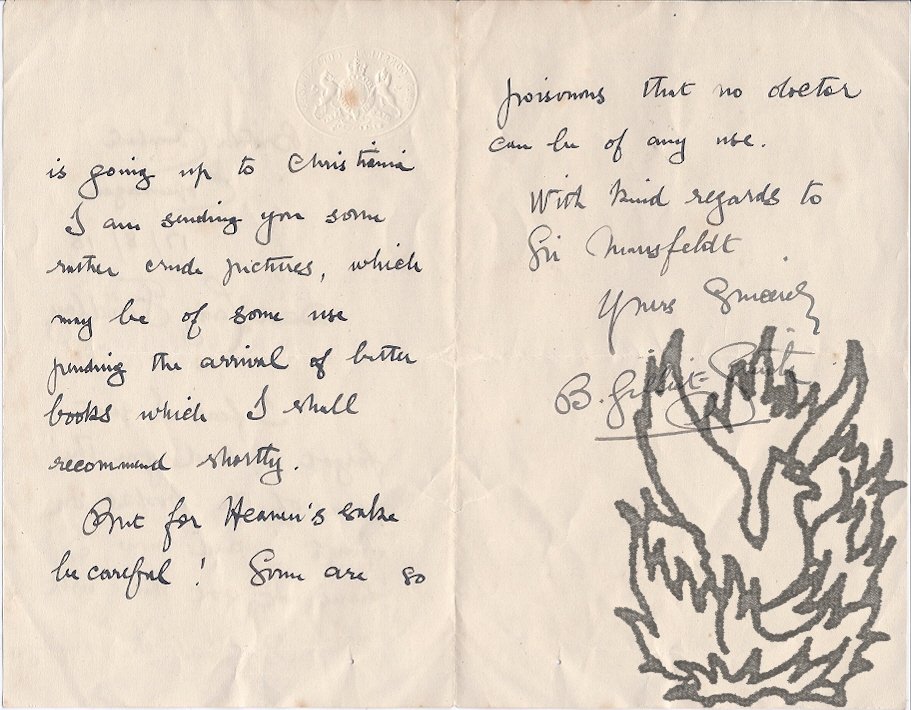 is going up to Christiania
I am sending you some
rather crude pictures, which
may be of some use
pending the arrival of better
books which I shall
recommend shortly.
But for Heaven's sake
be careful! Some are so
poisonous that no doctor
can be of any use.
With kind regards to
Sir Mansfeldt
Yours Sincerely
B.